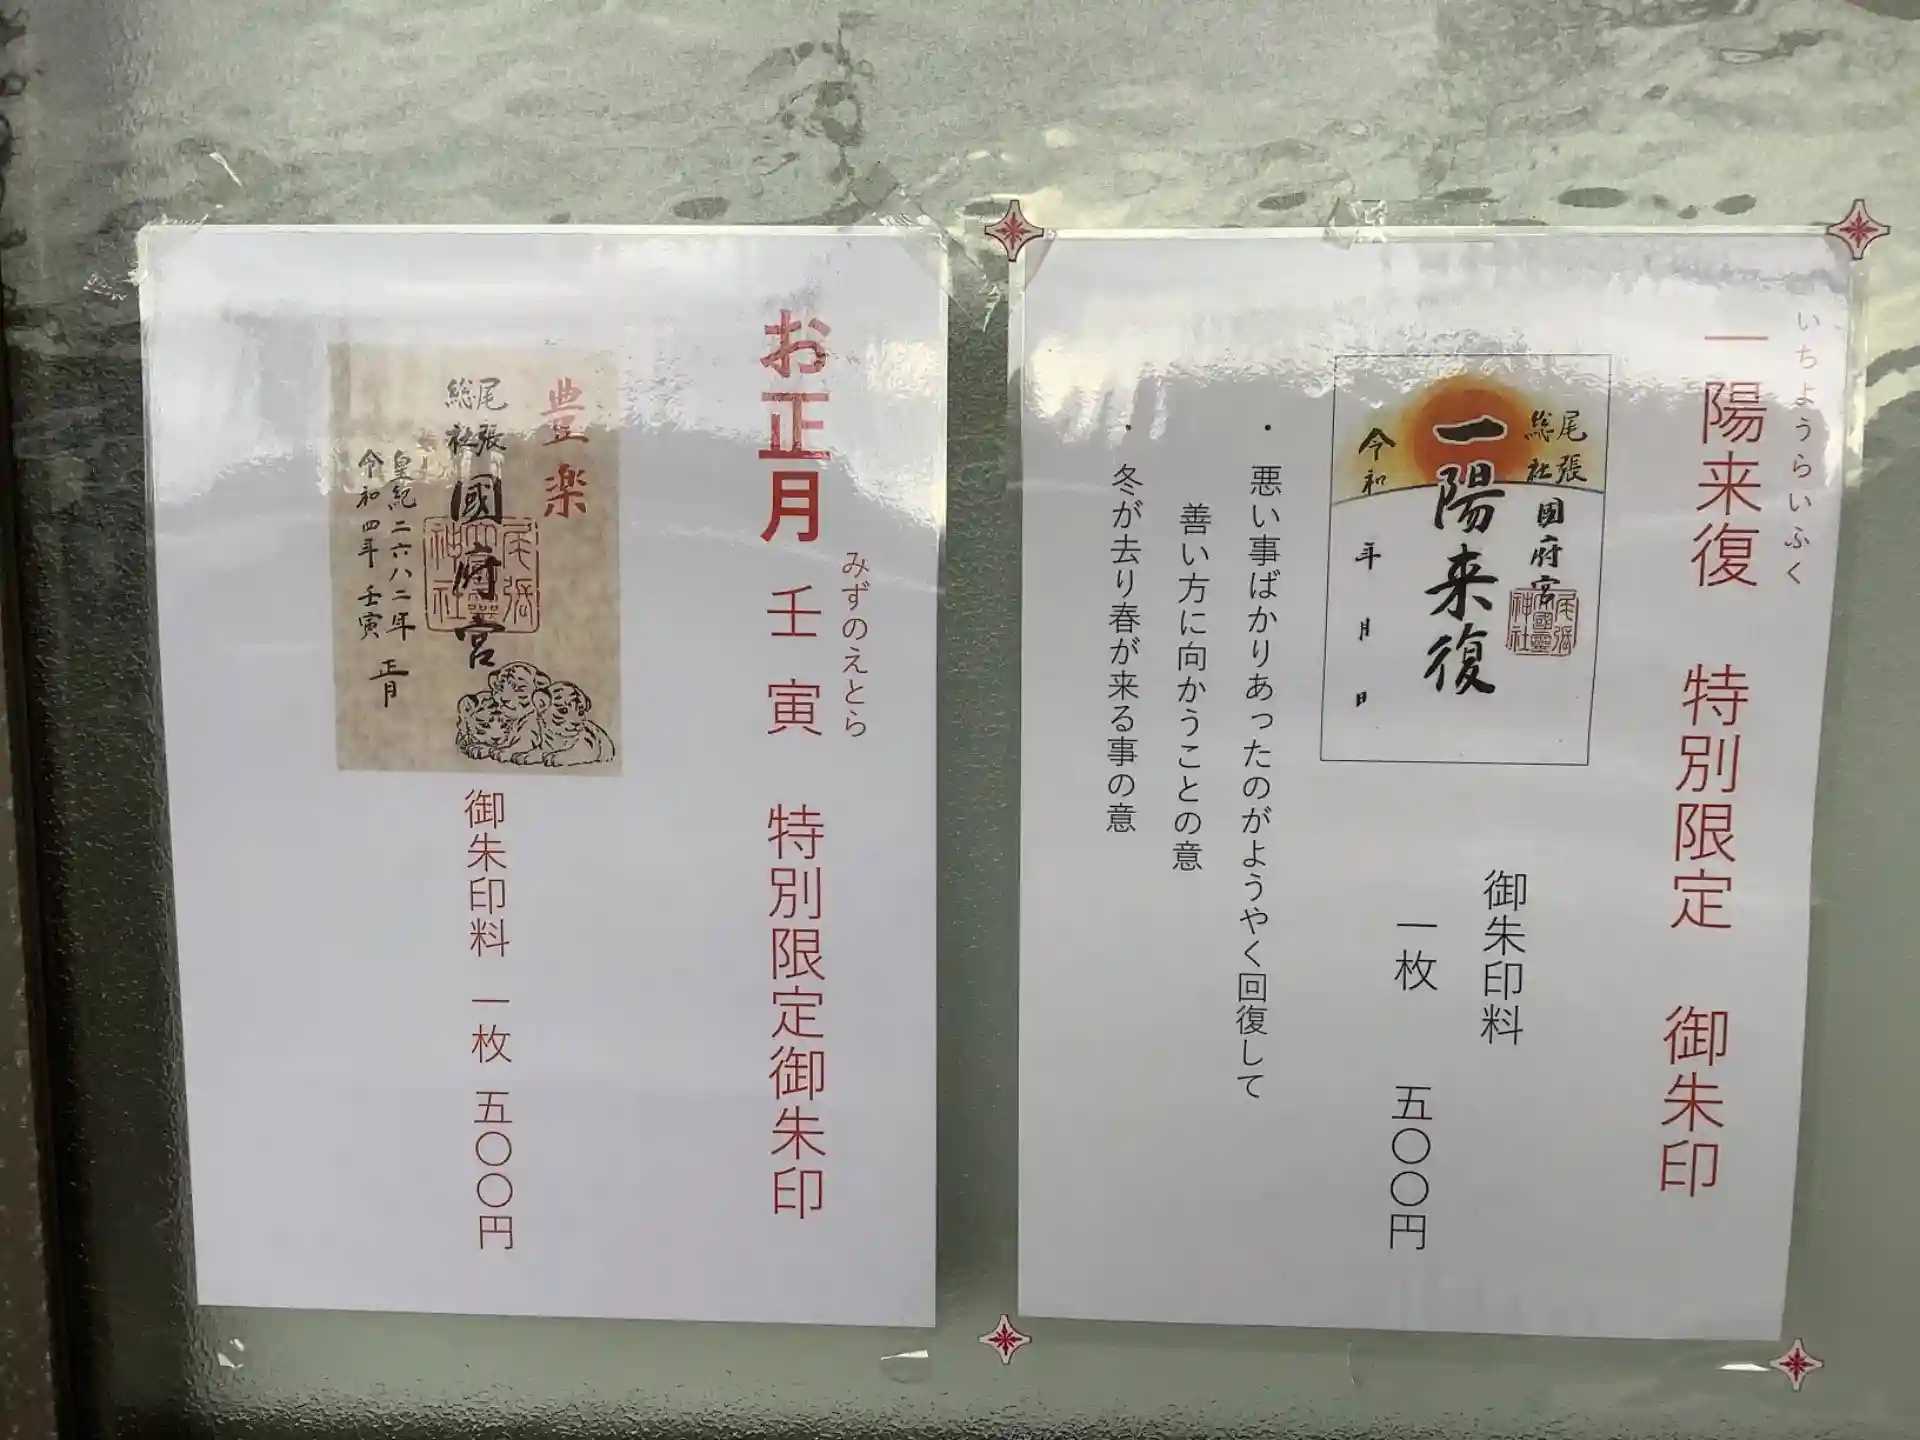 いちようらいふく
一陽来復　特別限定　御朱印
尾張
総社
國府宮
尾張
大國霊
神社
一陽来復
令和　年　月　日
御朱印料
一枚　五〇〇円
・悪い事ばかりあったのがようやく回復して
善い方に向かうことの意
・冬が去り春が来る事の意
みずのえとら
お正月　壬寅　特別限定御朱印
豊楽
尾張
総社
國府宮
尾張
大國霊
神社
皇紀二六八二年
令和四年　壬寅
正月
御朱印料　一枚　五〇〇円